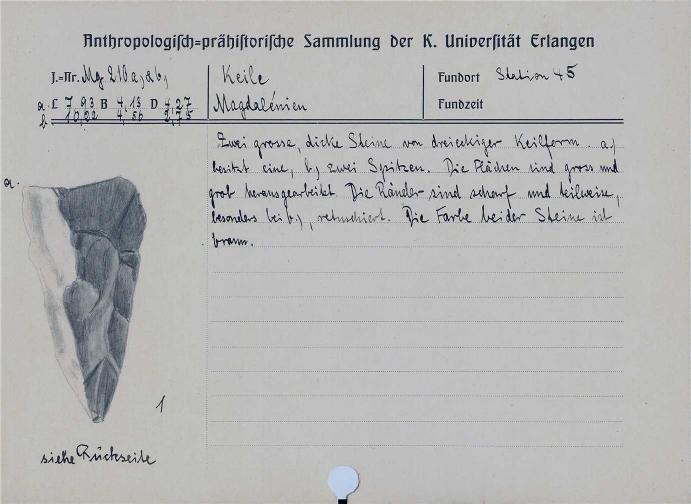 Anthropologisch=prähistorische Sammlung der K. Universität Erlangen
J.=Nr. Mg 210a,&b, Keile Fundort Station 45
a. L 7,93 B 4,13 D 4,27 Magdalénien Fundzeit
b. 10,22 4,56 2,75
Zwei grosse, dicke Steine von dreieckiger Keilform. a.)
besitzt eine, b.) zwei Spitzen. Die Flächen sind gross und
grob herausgearbeitet. Die Ränder sind scharf und teilweise,
besonders bei b.), retuschiert. Die Farbe beider Steine ist
braun.
a.
1
siehe Rückseite